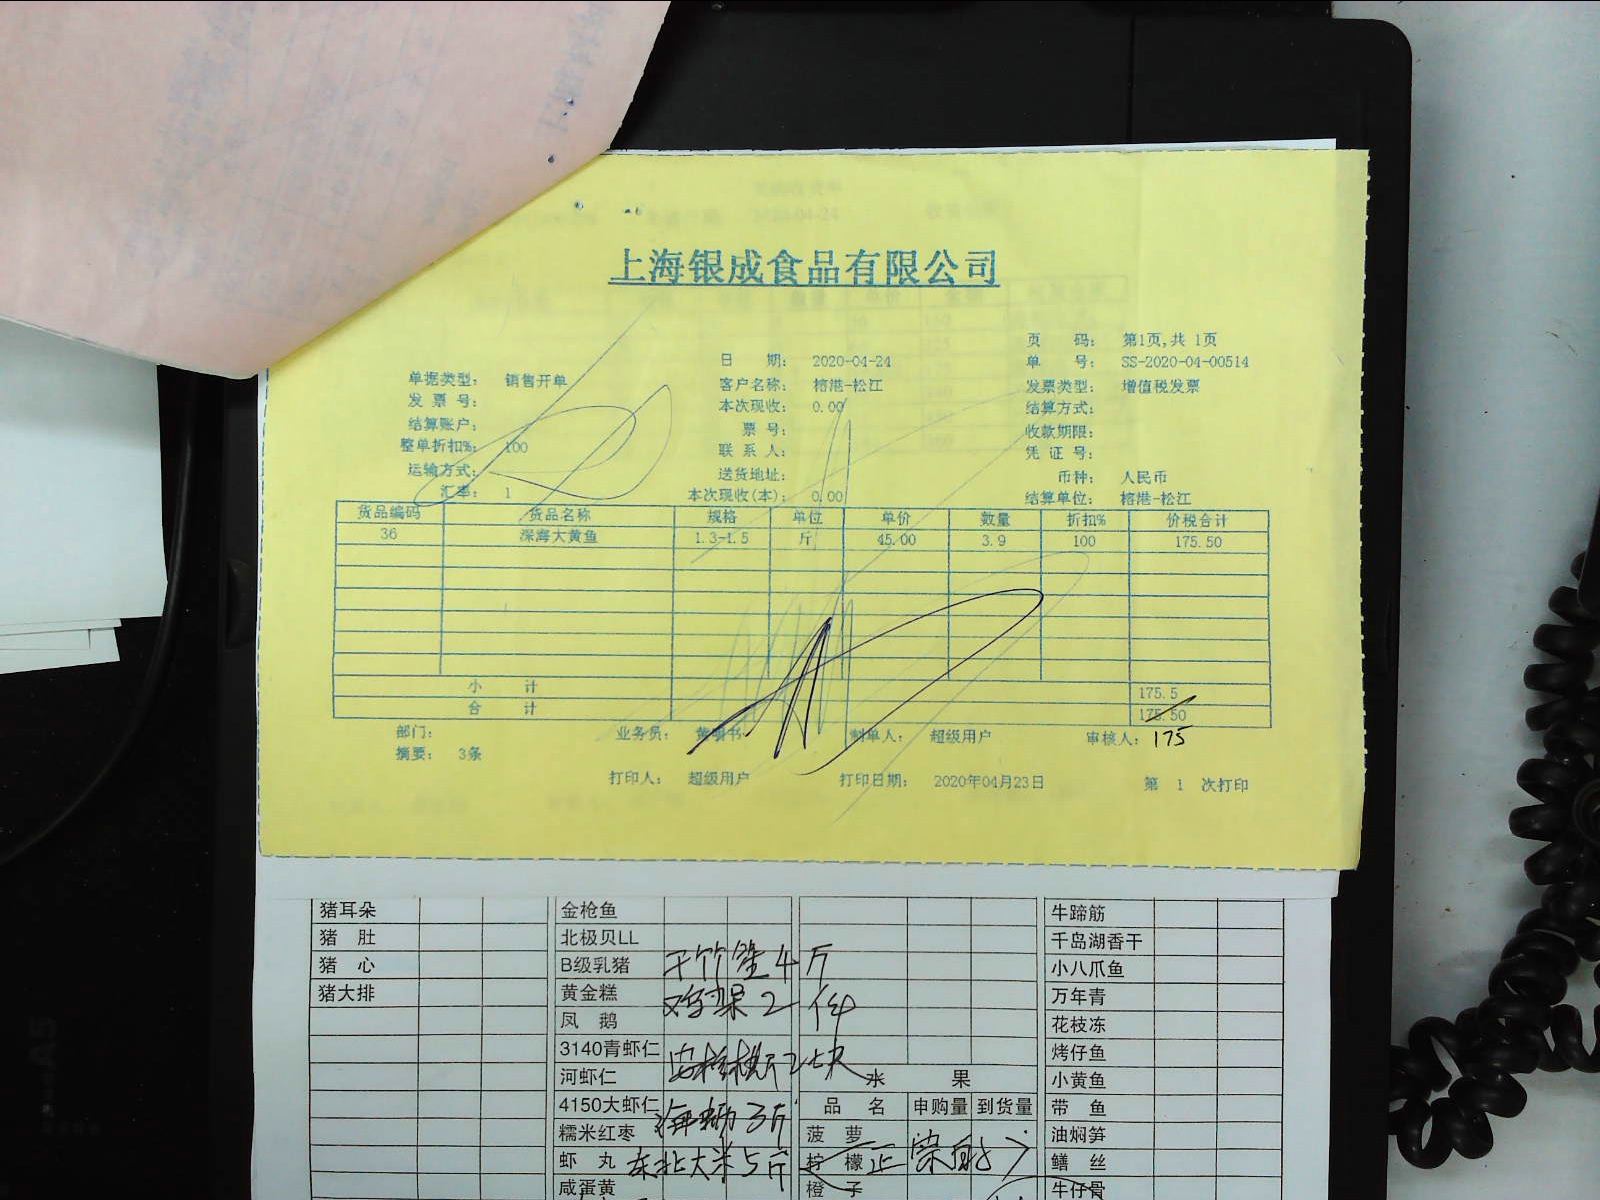 上海银成食品有限公司
页 码: 第1页,共 1页
日 期: 2020-04-24 单 号: SS-2020-04-00514
单据类型: 销售开单 客户名称: 榕港-松江 发票类型: 增值税发票
发 票 号: 本次现收: 0.00 结算方式:
结算账户: 票 号: 收款期限:
整单折扣%: 100 联 系 人: 凭 证 号:
运输方式: 送货地址: 币种: 人民币
汇率: 1 本次现收(本): 0.00 结算单位: 榕港-松江
货品编码 货品名称 规格 单位 单价 数量 折扣% 价税合计
36 深海大黄鱼 1.3-1.5 斤 45.00 3.9 100 175.50
小 计 175.5
合 计 175.50
部门: 业务员: 制单人: 超级用户 审核人: 175
摘要: 3条
打印人: 超级用户 打印日期: 2020年04月23日 第 1 次打印
猪耳朵 金枪鱼 牛蹄筋
猪 肚 北极贝LL 千岛湖香干
猪 心 B级乳猪 干竹笙4斤 小八爪鱼
猪大排 黄金糕 2份 万年青
凤 鹅 花枝冻
3140青虾仁 烤仔鱼
河虾仁 水 果 小黄鱼
4150大虾仁 3斤 品 名 申购量 到货量 带 鱼
糯米红枣 菠 萝 油焖笋
虾 丸 东北大米5斤 柠 檬 鳝 丝
咸蛋黄 橙 子 牛仔骨